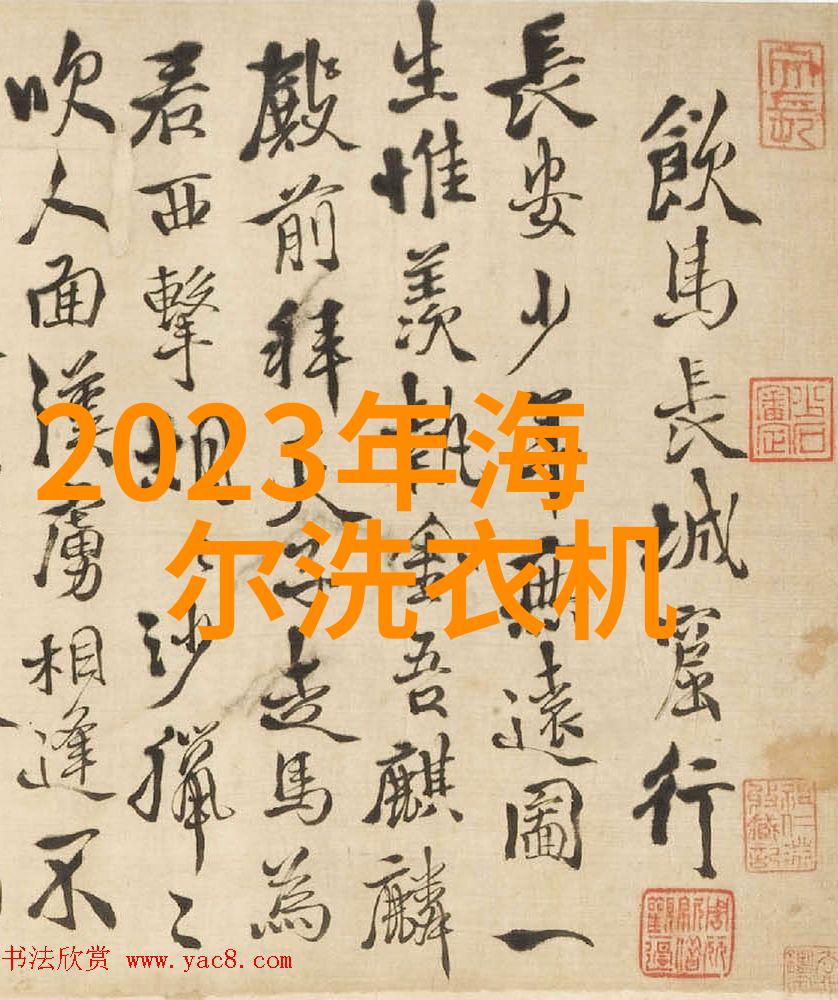 飲馬長城窟行
長安少年無遠圖一
生惟羨執金吾麒麟
殿前拜天子走馬為
君西擊胡〻沙獵〻
吹人面漢虜相逢不
2023年海
尔洗衣机
书法欣赏 www.yac8.com